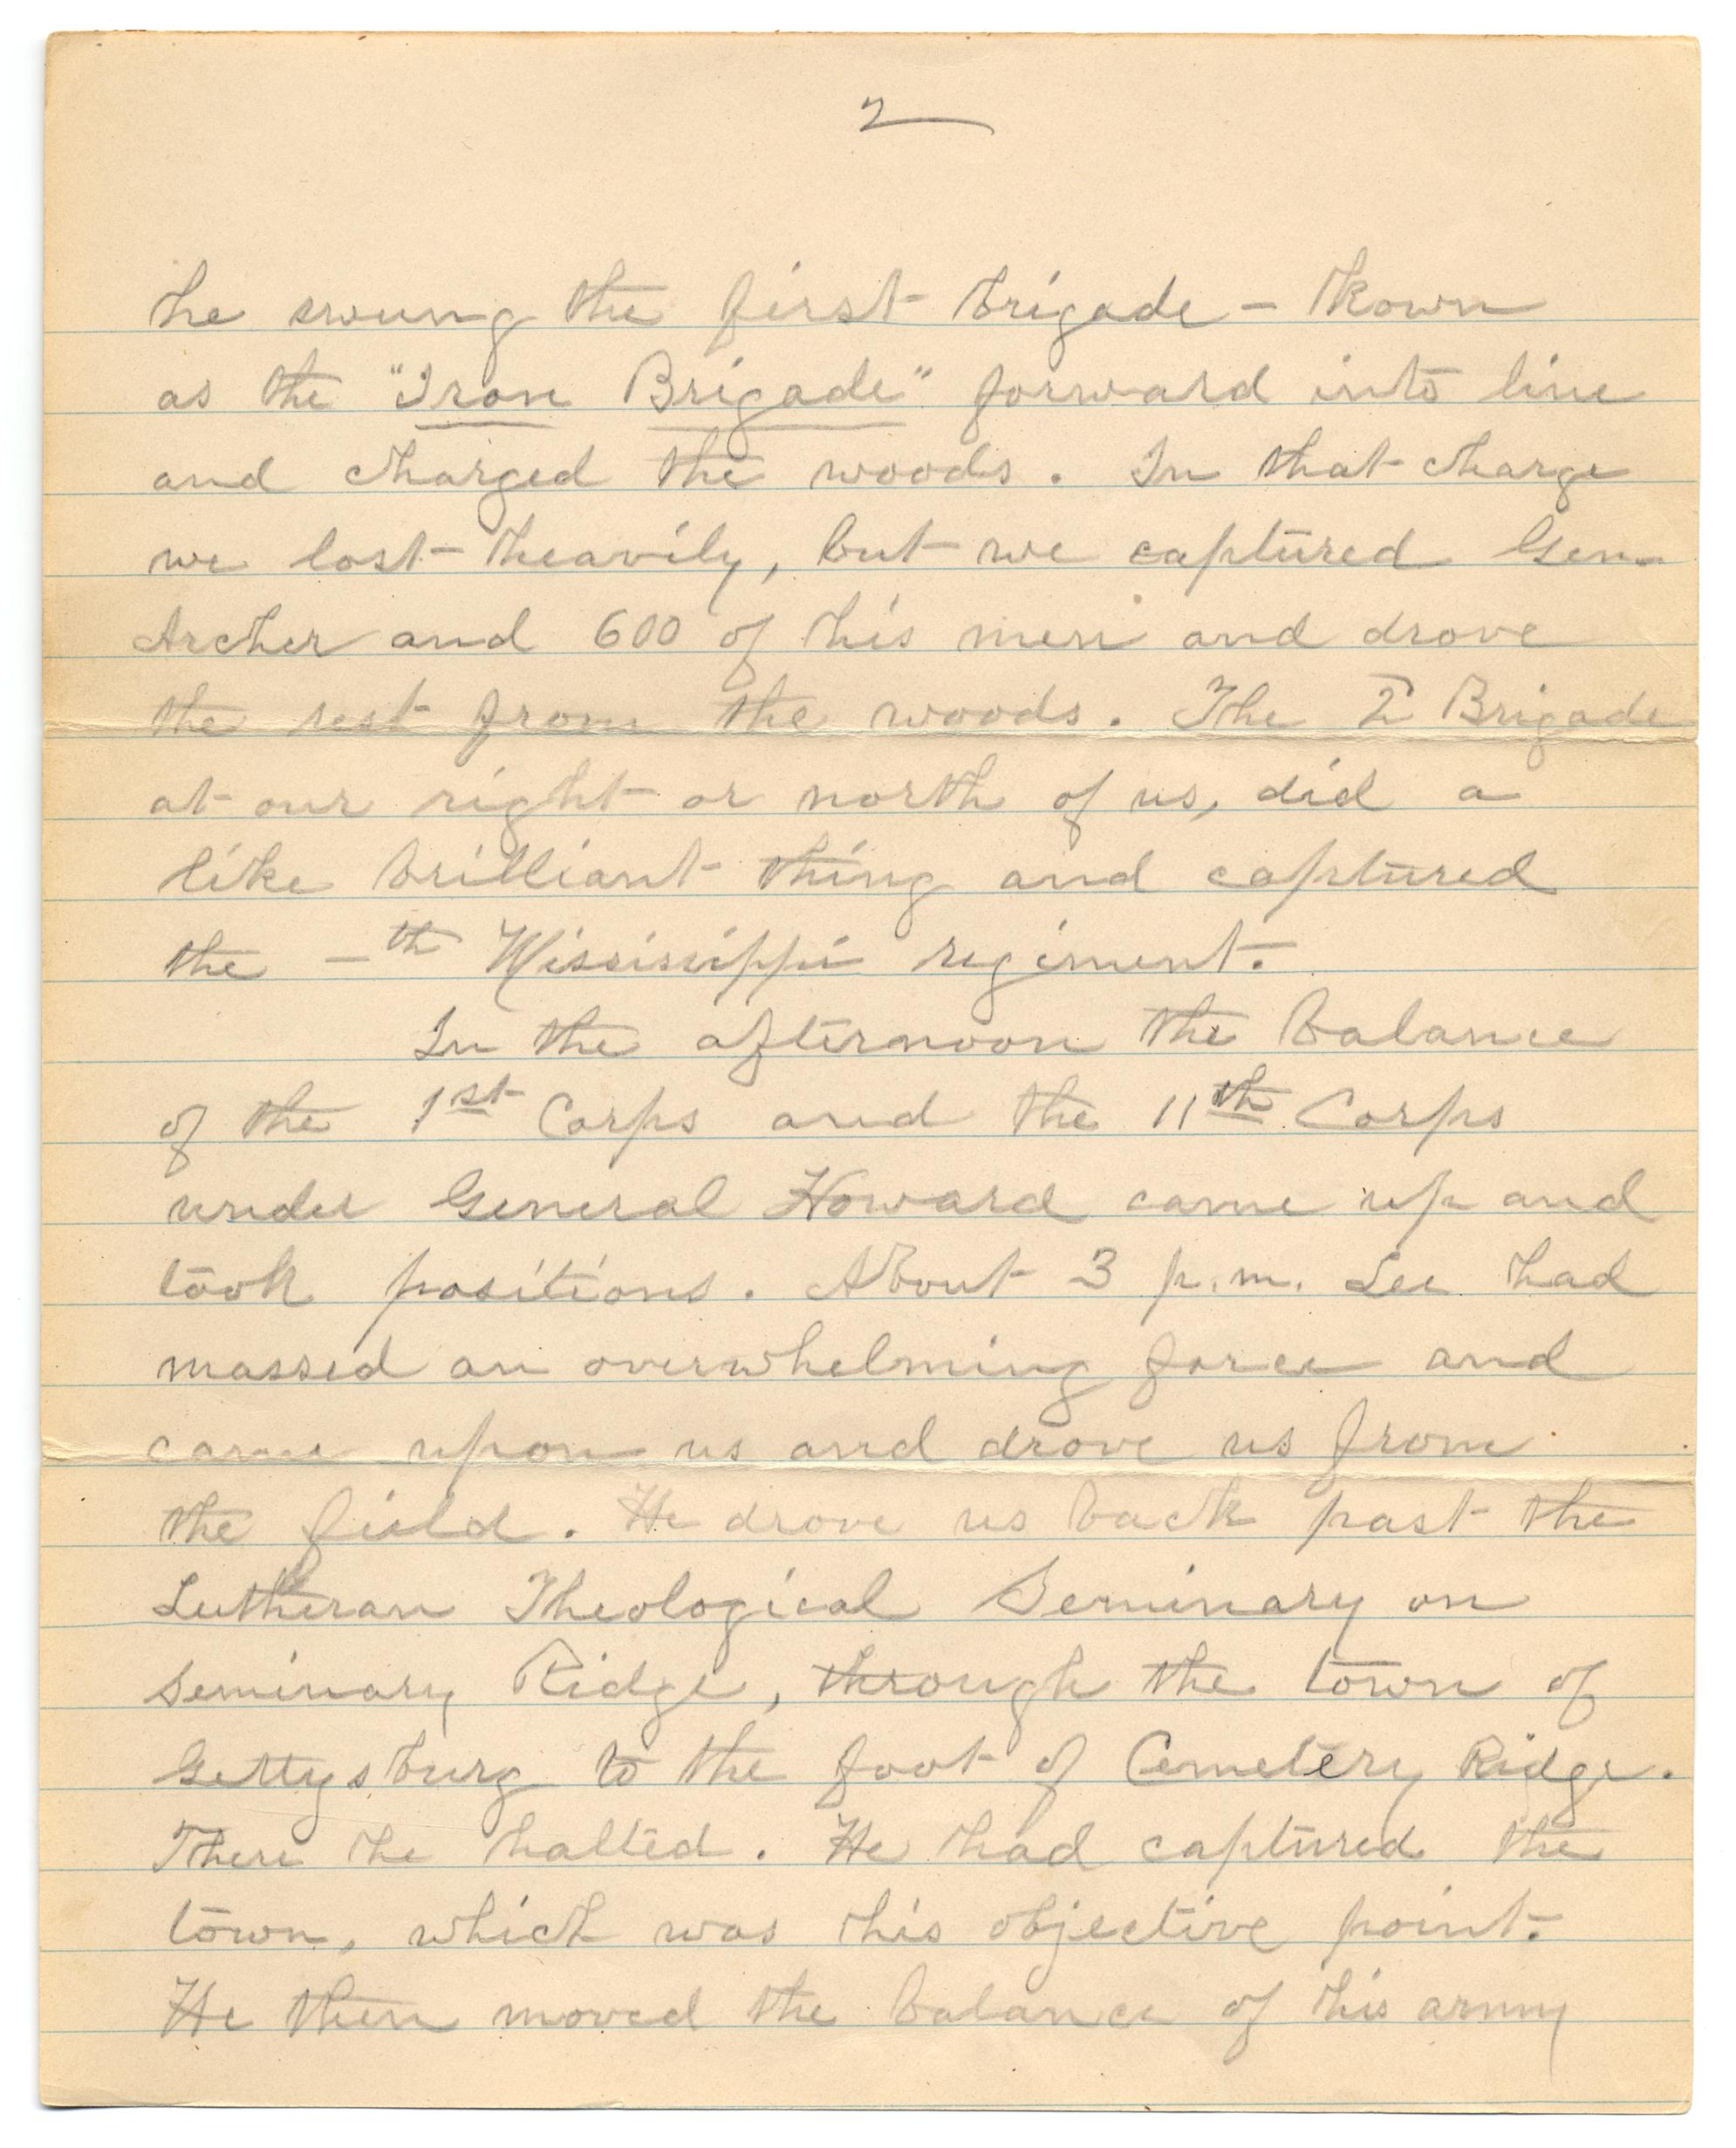 2
he swung the first brigade - kown
as the "Iron Brigade" forward into line
and charged the woods. In that charge
we lost heavily, but we captured Gen.
Archer and 600 of his men and drove
the rest from the woods. The 2 Brigade
at our right or north of us, did a
like brilliant thing and captured
the -th Mississippi regiment.
In the afternoon the balance
of the 1st Corps and the 11th Corps
under General Howard came up and
took positions. About 3 p.m. Lee had
massed an overwhelming force and
came upon us and drove us from
the field. He drove us back past the
Lutheran Theological Seminary on
Seminary Ridge, through the town of
Gettysburg to the foot of Cemetery Ridge.
There he halted. He had captured the
town, which was his objective point.
He then moved the balance of his army